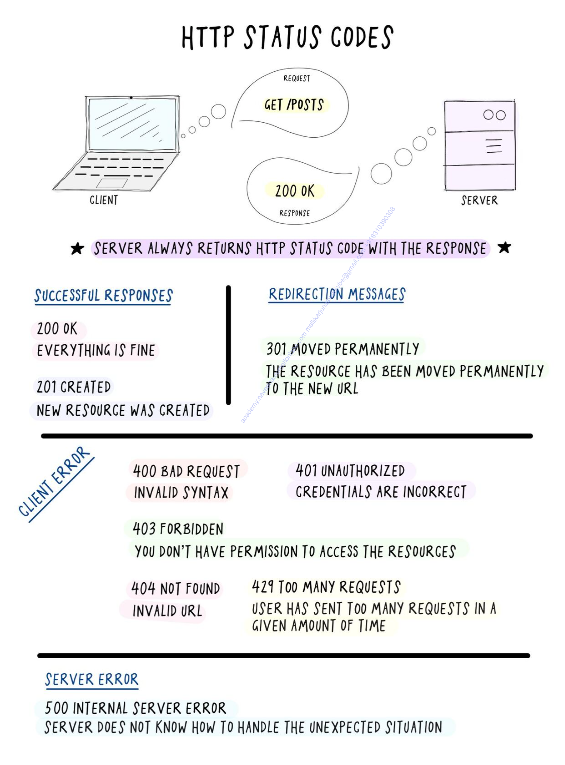 HTTP STATUS CODES
REQUEST
GET /POSTS
CLIENT
200 OK
RESPONSE
SERVER
★ SERVER ALWAYS RETURNS HTTP STATUS CODE WITH THE RESPONSE ★
SUCCESSFUL RESPONSES
200 OK
EVERYTHING IS FINE
201 CREATED
NEW RESOURCE WAS CREATED
REDIRECTION MESSAGES
301 MOVED PERMANENTLY
THE RESOURCE HAS BEEN MOVED PERMANENTLY
TO THE NEW URL
CLIENT ERROR
400 BAD REQUEST
INVALID SYNTAX
401 UNAUTHORIZED
CREDENTIALS ARE INCORRECT
403 FORBIDDEN
YOU DON'T HAVE PERMISSION TO ACCESS THE RESOURCES
404 NOT FOUND
INVALID URL
429 TOO MANY REQUESTS
USER HAS SENT TOO MANY REQUESTS IN A
GIVEN AMOUNT OF TIME
SERVER ERROR
500 INTERNAL SERVER ERROR
SERVER DOES NOT KNOW HOW TO HANDLE THE UNEXPECTED SITUATION